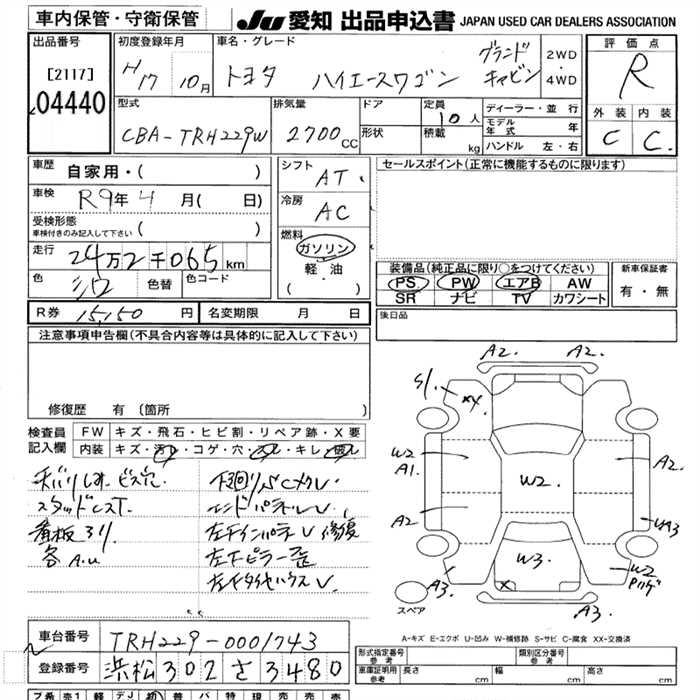 車内保管・守衛保管
JU 愛知 出品申込書 JAPAN USED CAR DEALERS ASSOCIATION
出品番号
[2117]
04440
初度登録年月
H17 10月
車名・グレード
トヨタ ハイエースワゴン グランドキャビン
2WD
・
4WD
評価点
R
型式
CBA-TRH229W
排気量
2700CC
ドア
形状
定員
10人
積載
kg
ディーラー・並行
モデル年式 年
ハンドル 左・右
外装 内装
C C.
車歴
自家用・( )
車検
R9年4月( 日)
受検形態
車検付きのみ記入して下さい ( )
走行
24万2千065km
色
シロ
色替
色コード
シフト
AT
冷房
AC
燃料
ガソリン
・
軽油
( ・ )
セールスポイント(正常に機能するものに限ります)
装備品(純正品に限り○をつけてください)
PS PW エアB AW
SR ナビ TV カワシート
新車保証書
有・無
R券 15,150円
名変期限 月 日
後日品
注意事項申告欄(不具合内容等は具体的に記入して下さい)
修復歴 有(箇所 )
検査員記入欄
FW キズ・飛石・ヒビ割・リペア跡・X要
内装 キズ・汚レ・コゲ・穴・・キレ・
ビス穴
スタッドレスT.
看板
各A.U
下廻りSCメクレ
エンドパネルU
左インパネU 修復
左ピラー歪
U
A2. A2.
S/. X4
W2
A1.
W2.
A2.
A2
A3
W3.
X
W2
A3. A3.
スペア
A-キズ E-エクボ U-凹み W-補修跡 S-サビ C-腐食 XX-交換済
車台番号
TRH229-0001743
登録番号
浜松302さ3480
形式指定番号
参考
類別区分番号
参考
車庫証明用
参考
長さ cm
幅 cm
高さ cm